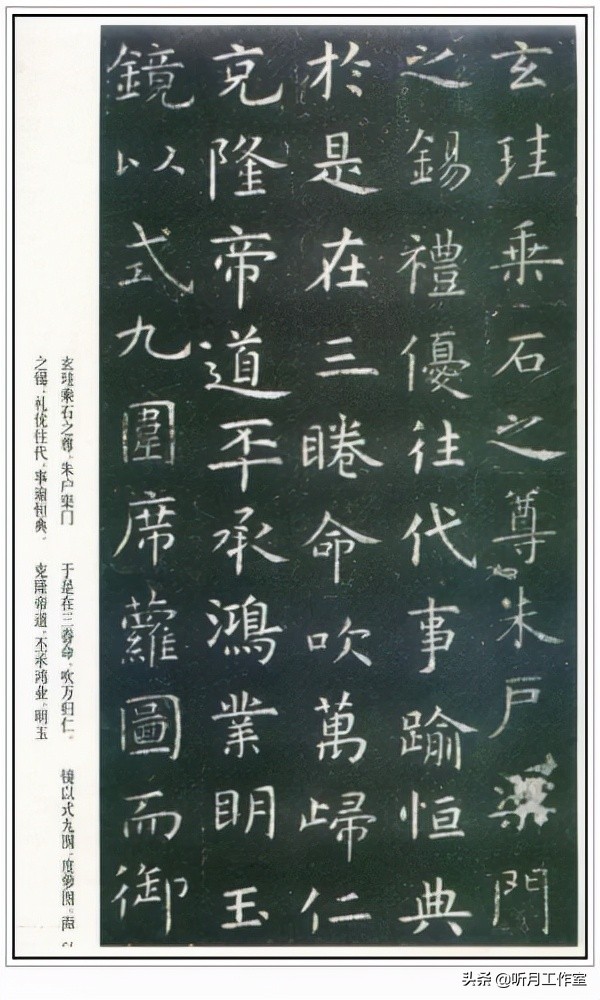 玄珪乘石之尊朱戶渠門
之錫禮優往代事踰恒典
於是在三睠命吹萬歸仁
克隆帝道丕承鴻業明玉
鏡以式九圍席蘿圖而御
玄珪乘石之尊，朱户渠门
之锡，礼优往代，事踰恒典。
于是在三眷命，吹万归仁。
克隆帝道，丕承鸿业，明玉
镜以式九围，席萝图。而
头条 @听月工作室